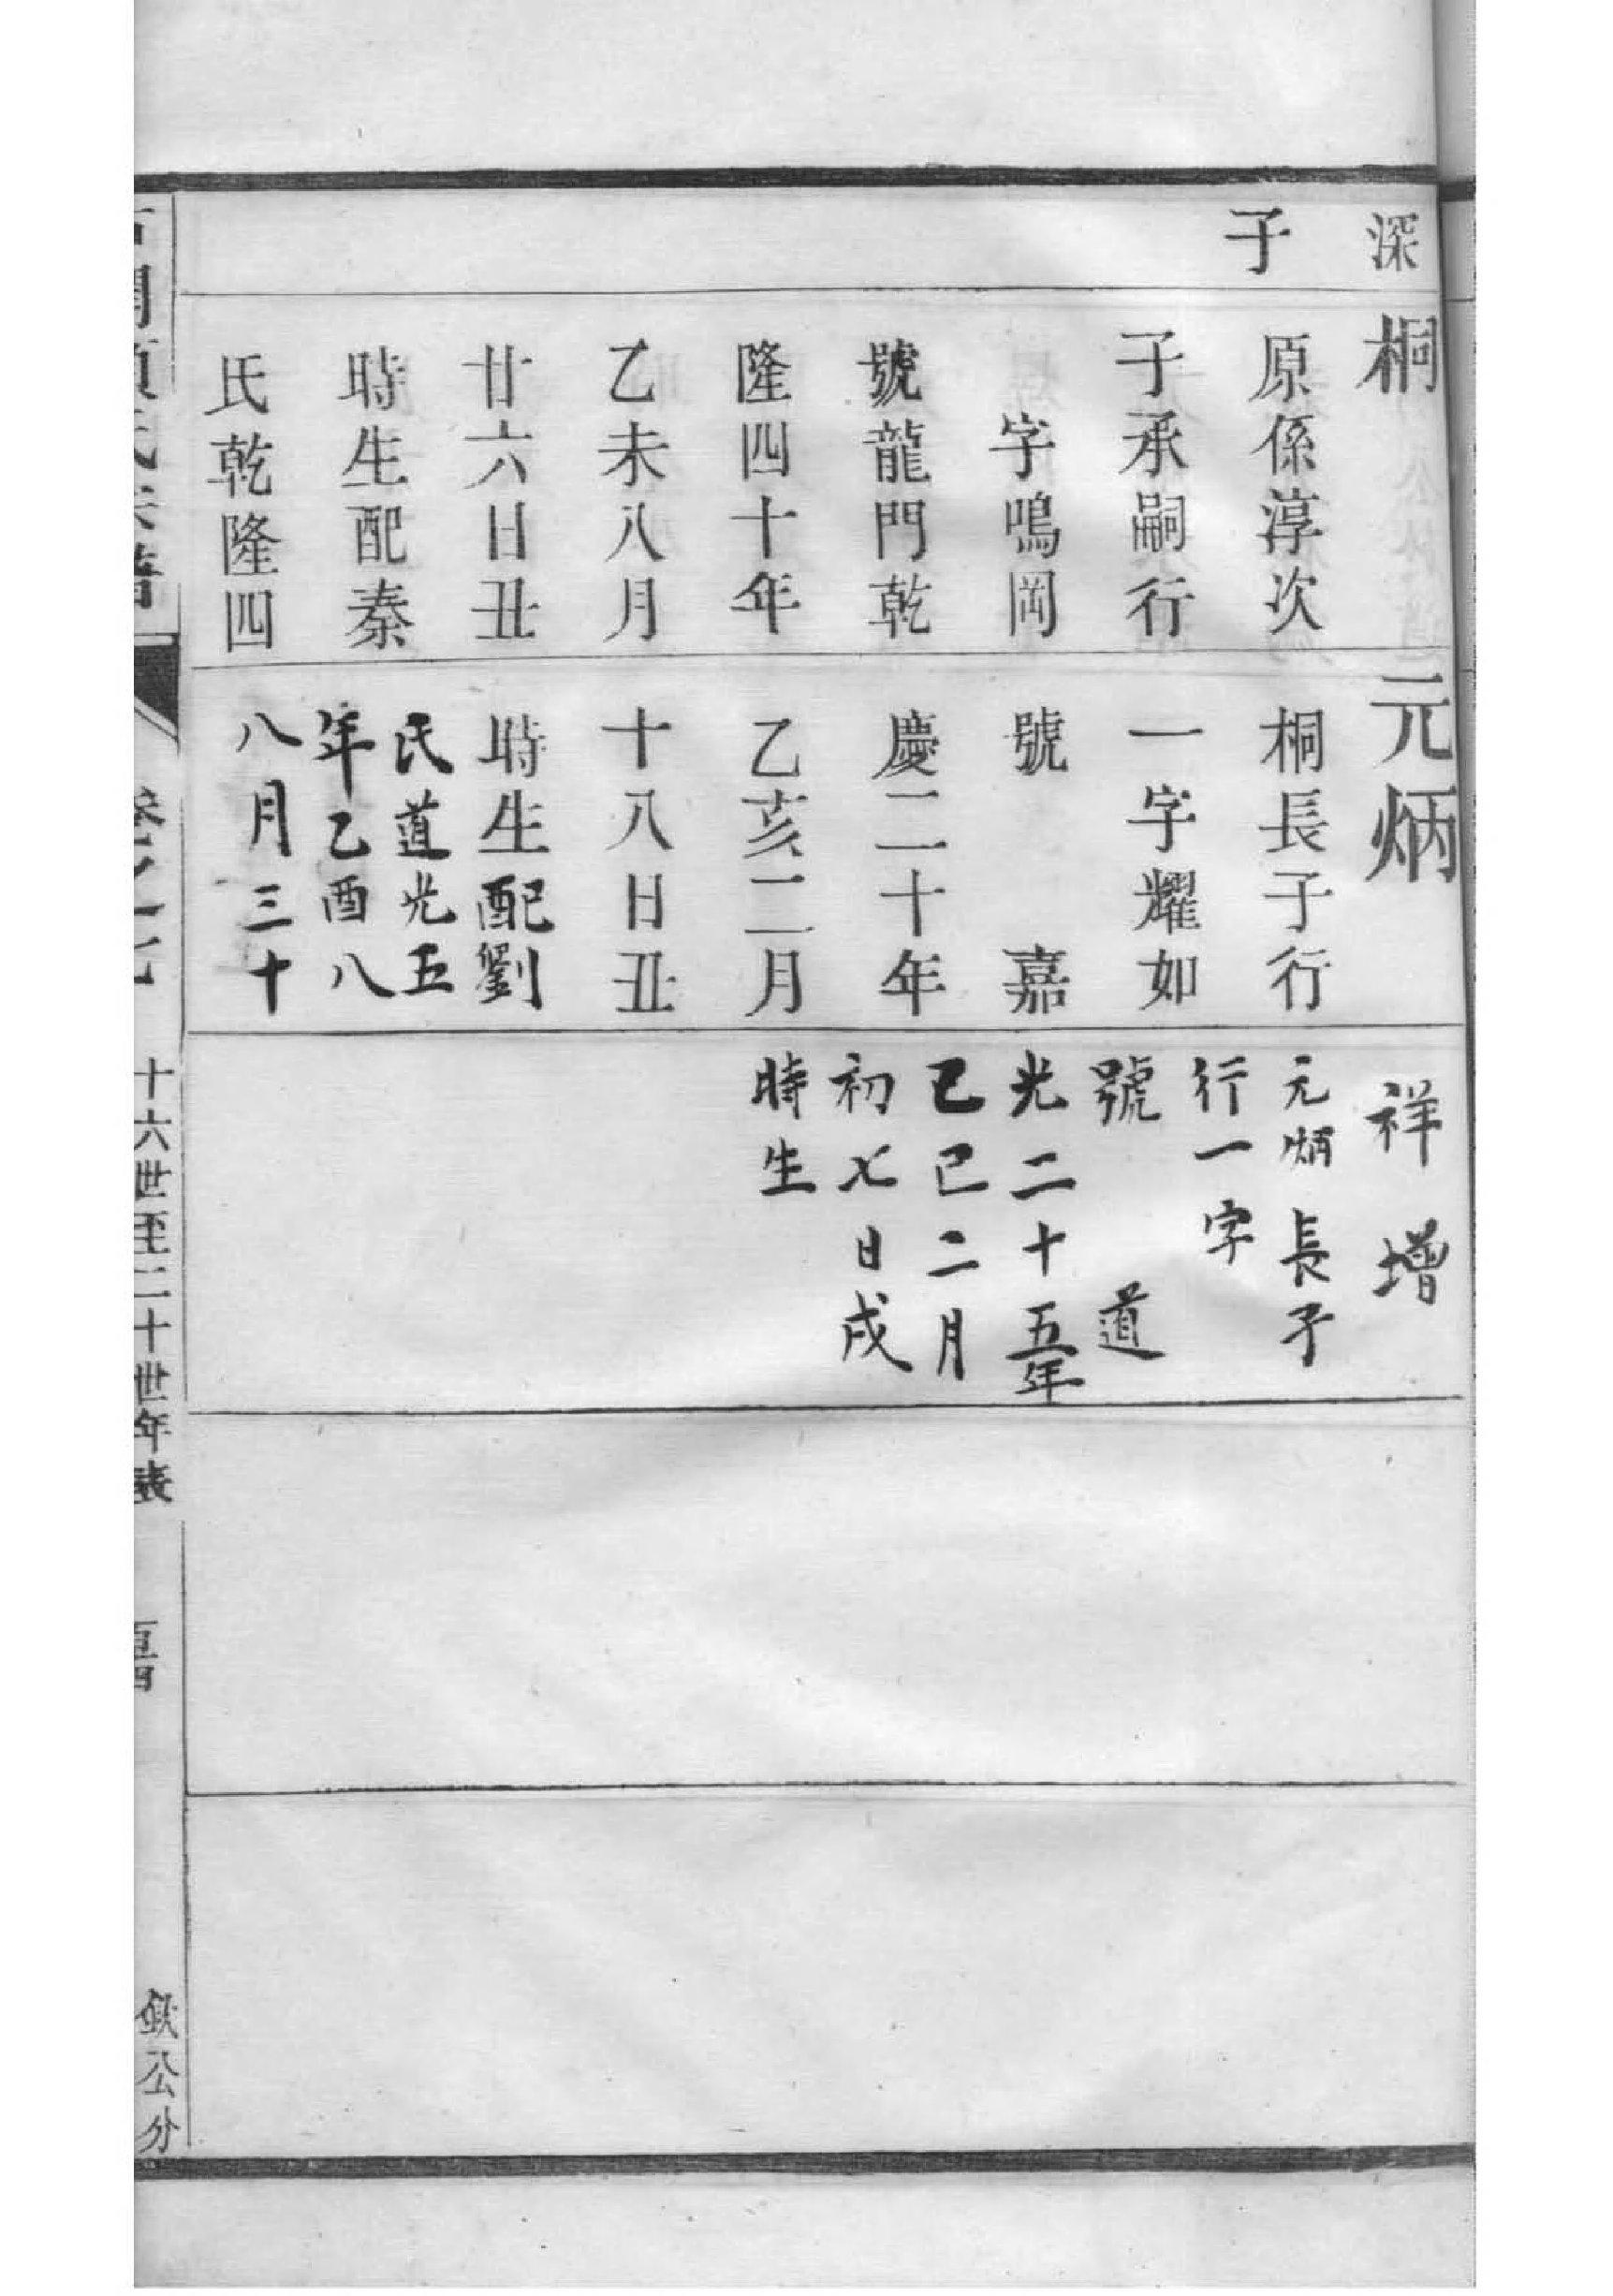 深
子
桐
原係淳次
子承嗣行
字鳴岡
號龍門乾
隆四十年
乙未八月
廿六日丑
時生配秦
氏乾隆四
元炳
桐長子行
一字耀如
號 嘉
慶二十年
乙亥二月
十八日丑
時生配劉
氏道光五
年乙酉八
八月三十
祥增
元炳長子
行一字
號 道
光二十五年
已已二月
初七日戌
時生
十六世至二十世年表
公分